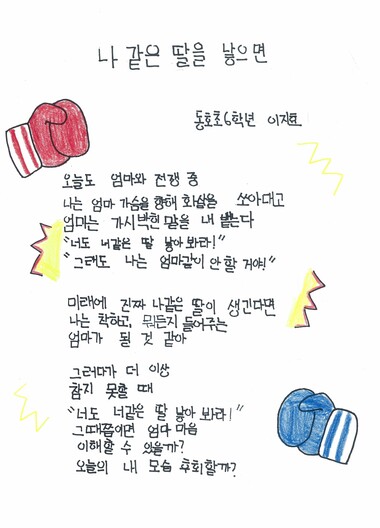 나 같은 딸을 낳으면
동호초6학년 이지
오늘도 엄마와 전쟁 중
나는 엄마 가슴을 향해 화살을 쏘아대고
엄마는 가시박힌 말을 내 뱉는다
"너도 너같은 딸 낳아 봐라!"
"그래도 나는 엄마같이 안 할 거야!"
미래에 진짜 나같은 딸이 생긴다면
나는 착하고, 뭐든지 들어주는
엄마가 될 것 같아
그러다가 더 이상
참지 못할 때
"너도 너같은 딸 낳아 봐라!"
그때쯤이면 엄마 마음
이해할 수 있을까?
오늘의 내 모습 후회할까?